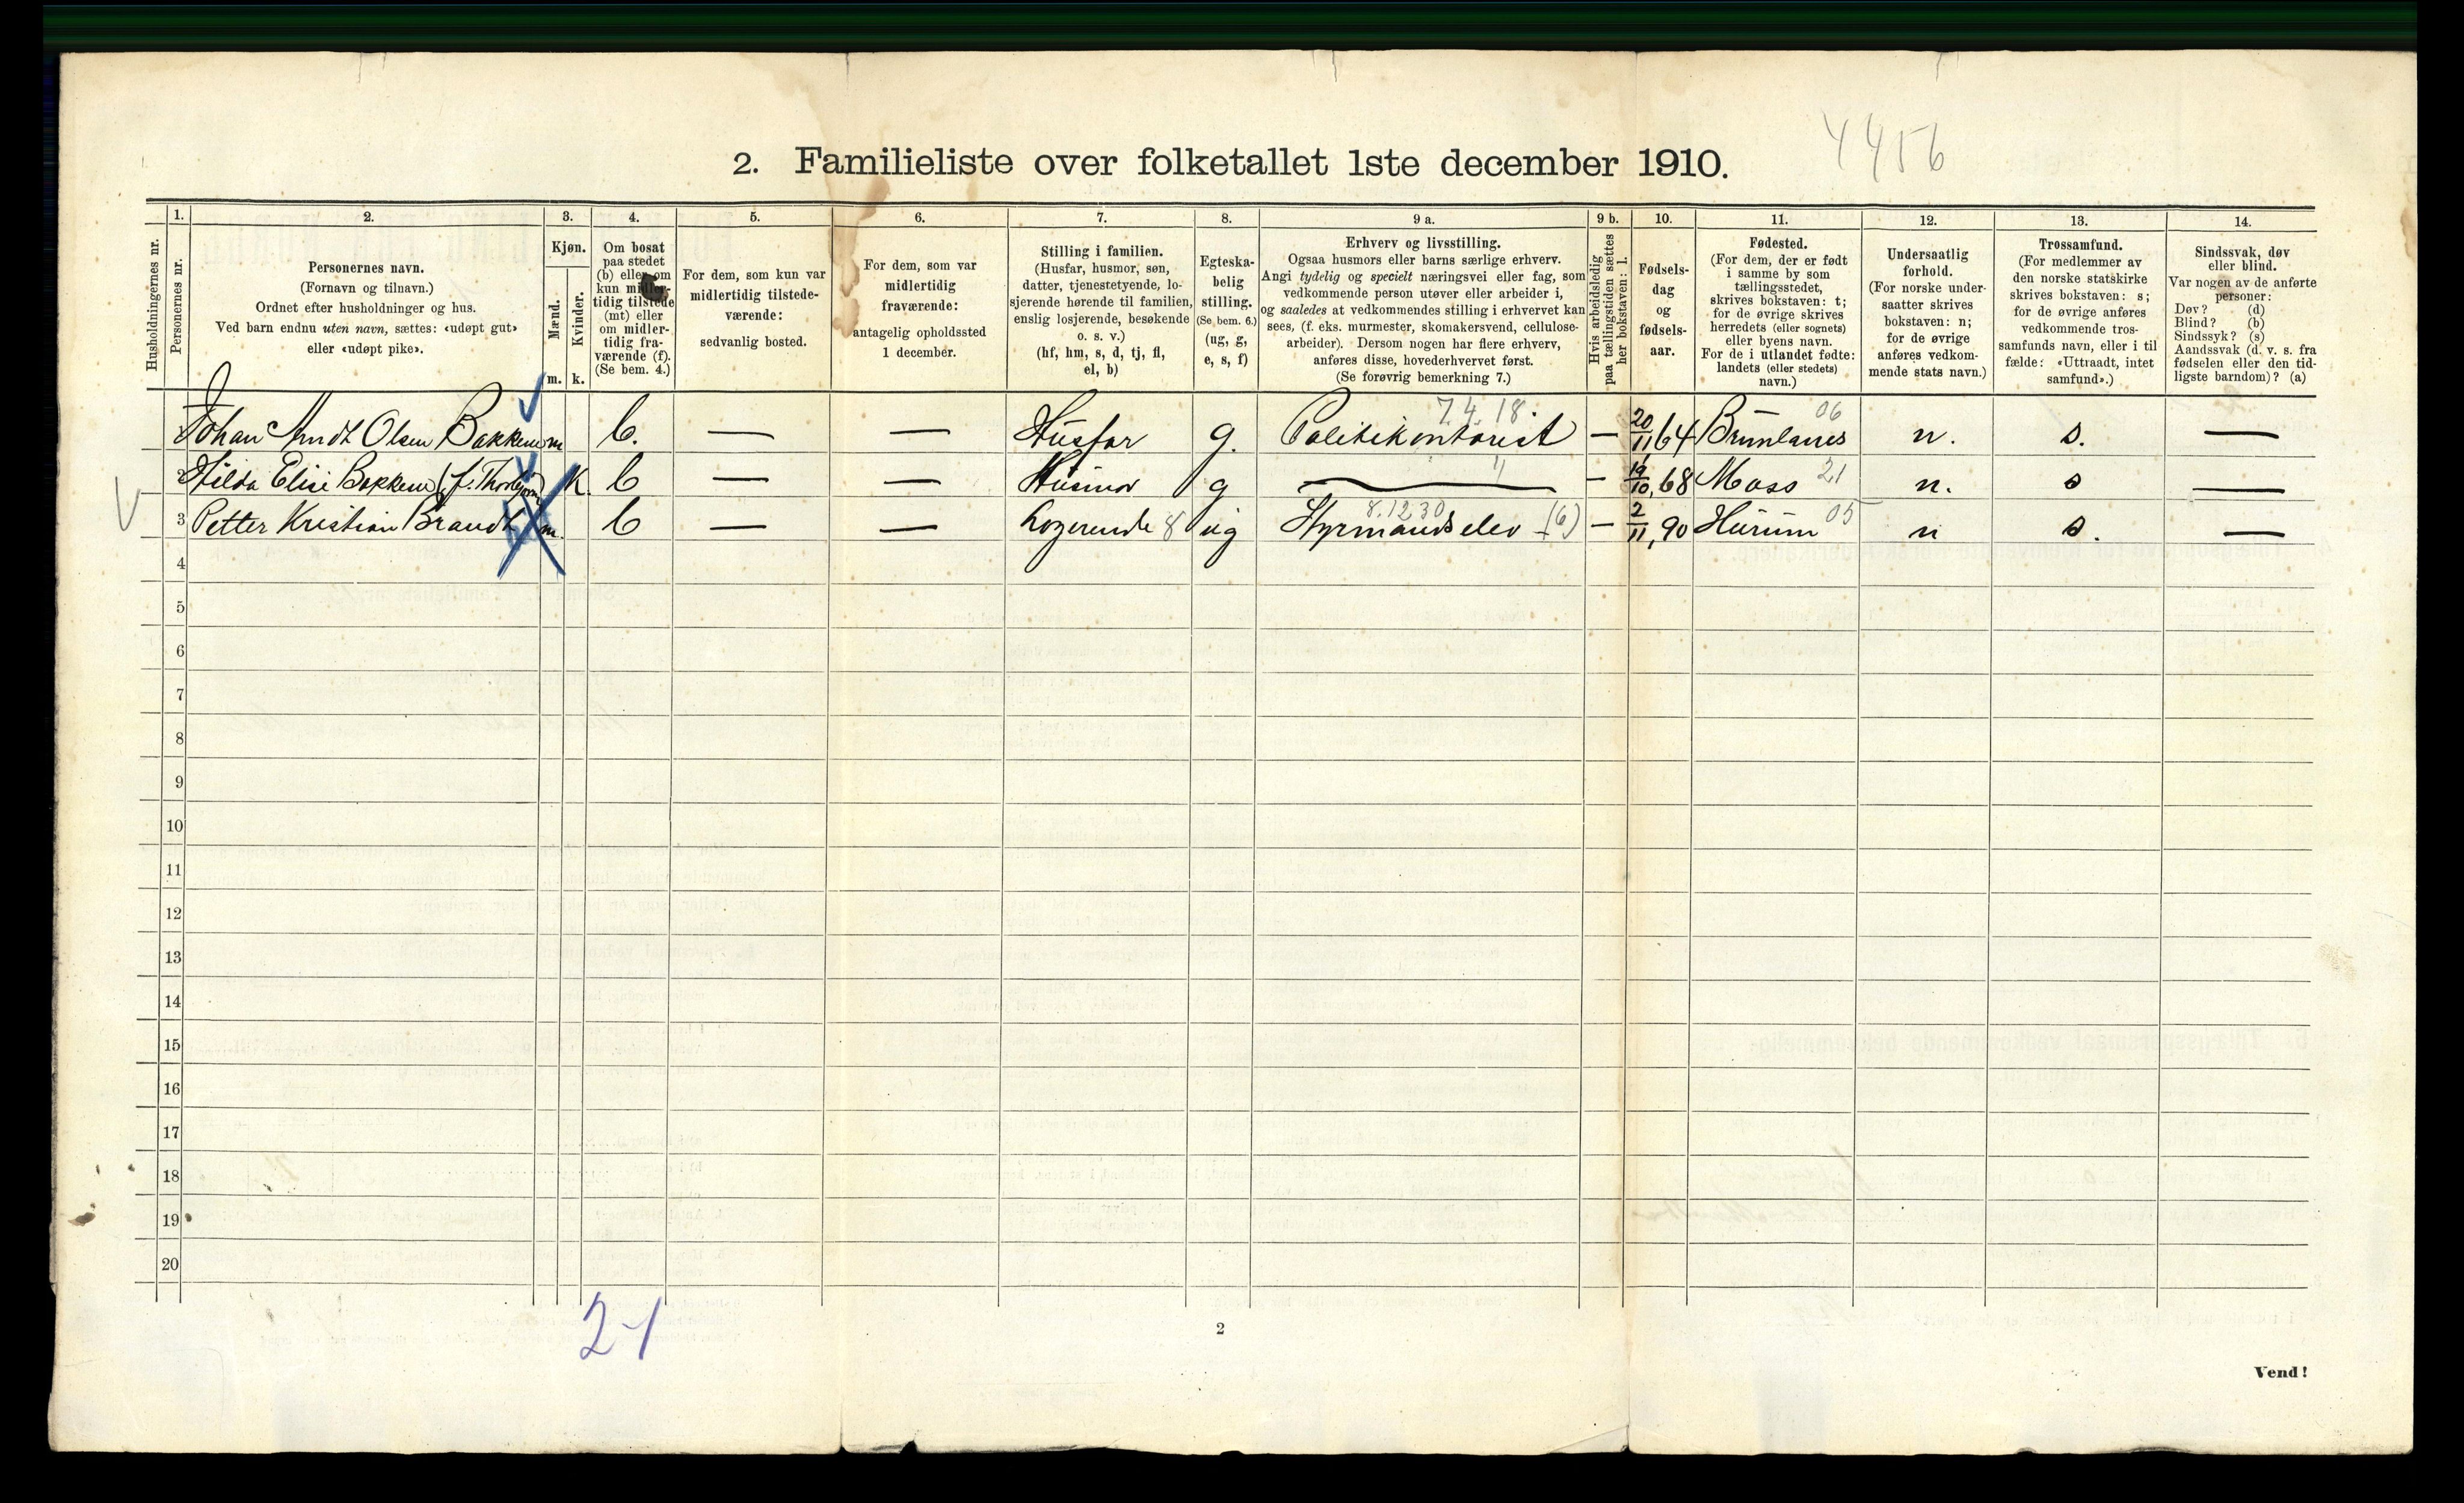 4456
2. Familieliste over folketallet 1ste december 1910.
Husholdningernes nr.
1.
Personernes nr.
2.
Personernes navn.
(Fornavn og tilnavn.)
Ordnet efter husholdninger og hus.
Ved barn endnu uten navn, sættes: «udøpt gut»
eller «udøpt pike».
3.
Kjøn.
Mænd.
Kvinder.
m. k.
4.
Om bosat
paa stedet
(b) eller om
kun midler-
tidig tilstede
(mt) eller
om midler-
tidig fra-
værende (f).
(Se bem. 4.)
5.
For dem, som kun var
midlertidig tilstede-
værende:
sedvanlig bosted.
6.
For dem, som var
midlertidig
fraværende:
antagelig opholdssted
1 december.
7.
Stilling i familien.
(Husfar, husmor, søn,
datter, tjenestetyende, lo-
sjerende hørende til familien,
enslig losjerende, besøkende
o. s. v.)
(hf, hm, s, d, tj, fl,
el, b)
8.
Egteska-
belig
stilling.
(Se bem. 6.)
(ug, g,
e, s, f)
9 a.
Erhverv og livsstilling.
Ogsaa husmors eller barns særlige erhverv.
Angi tydelig og specielt næringsvei eller fag, som
vedkommende person utøver eller arbeider i,
og saaledes at vedkommendes stilling i erhvervet kan
sees, (f. eks. murmester, skomakersvend, cellulose-
arbeider). Dersom nogen har flere erhverv,
anføres disse, hovederhvervet først.
(Se forøvrig bemerkning 7.)
9 b.
Hvis arbeidsledig
paa tællingstiden sættes
her bokstaven: l.
10.
Fødsels-
dag
og
fødsels-
aar.
11.
Fødested.
(For dem, der er født
i samme by som
tællingsstedet,
skrives bokstaven: t;
for de øvrige skrives
herredets (eller sognets)
eller byens navn.
For de i utlandet fødte:
landets (eller stedets)
navn.)
12.
Undersaatlig
forhold.
(For norske under-
saatter skrives
bokstaven: n;
for de øvrige
anføres vedkom-
mende stats navn.)
13.
Trossamfund.
(For medlemmer av
den norske statskirke
skrives bokstaven: s;
for de øvrige anføres
vedkommende tros-
samfunds navn, eller i til
fælde: «Uttraadt, intet
samfund».)
14.
Sindssvak, døv
eller blind.
Var nogen av de anførte
personer:
Døv? (d)
Blind? (b)
Sindssyk? (s)
Aandssvak (d. v. s. fra
fødselen eller den tid-
ligste barndom)? (a)
7.4.18 06
Johan Arndt Olsen Bakken m b. — — Husfar g. Politikontorist — 20/11, 64 Brunlanes n. s. —
2 Hilda Elise Bakken (f. Thorbjørn) K. b — — Husmor g — 19/10, 68 Moss 21 n. s —
8.12 30 05
3 Petter Kristian Brandt m. b — — Lozerende 8 ug Styrmandselev (6) — 2/11, 90 Hurum n s. —
4
5
6
7
8
9
10
11
12
13
14
15
16
17
18
19
20
2-1
2
Vend!